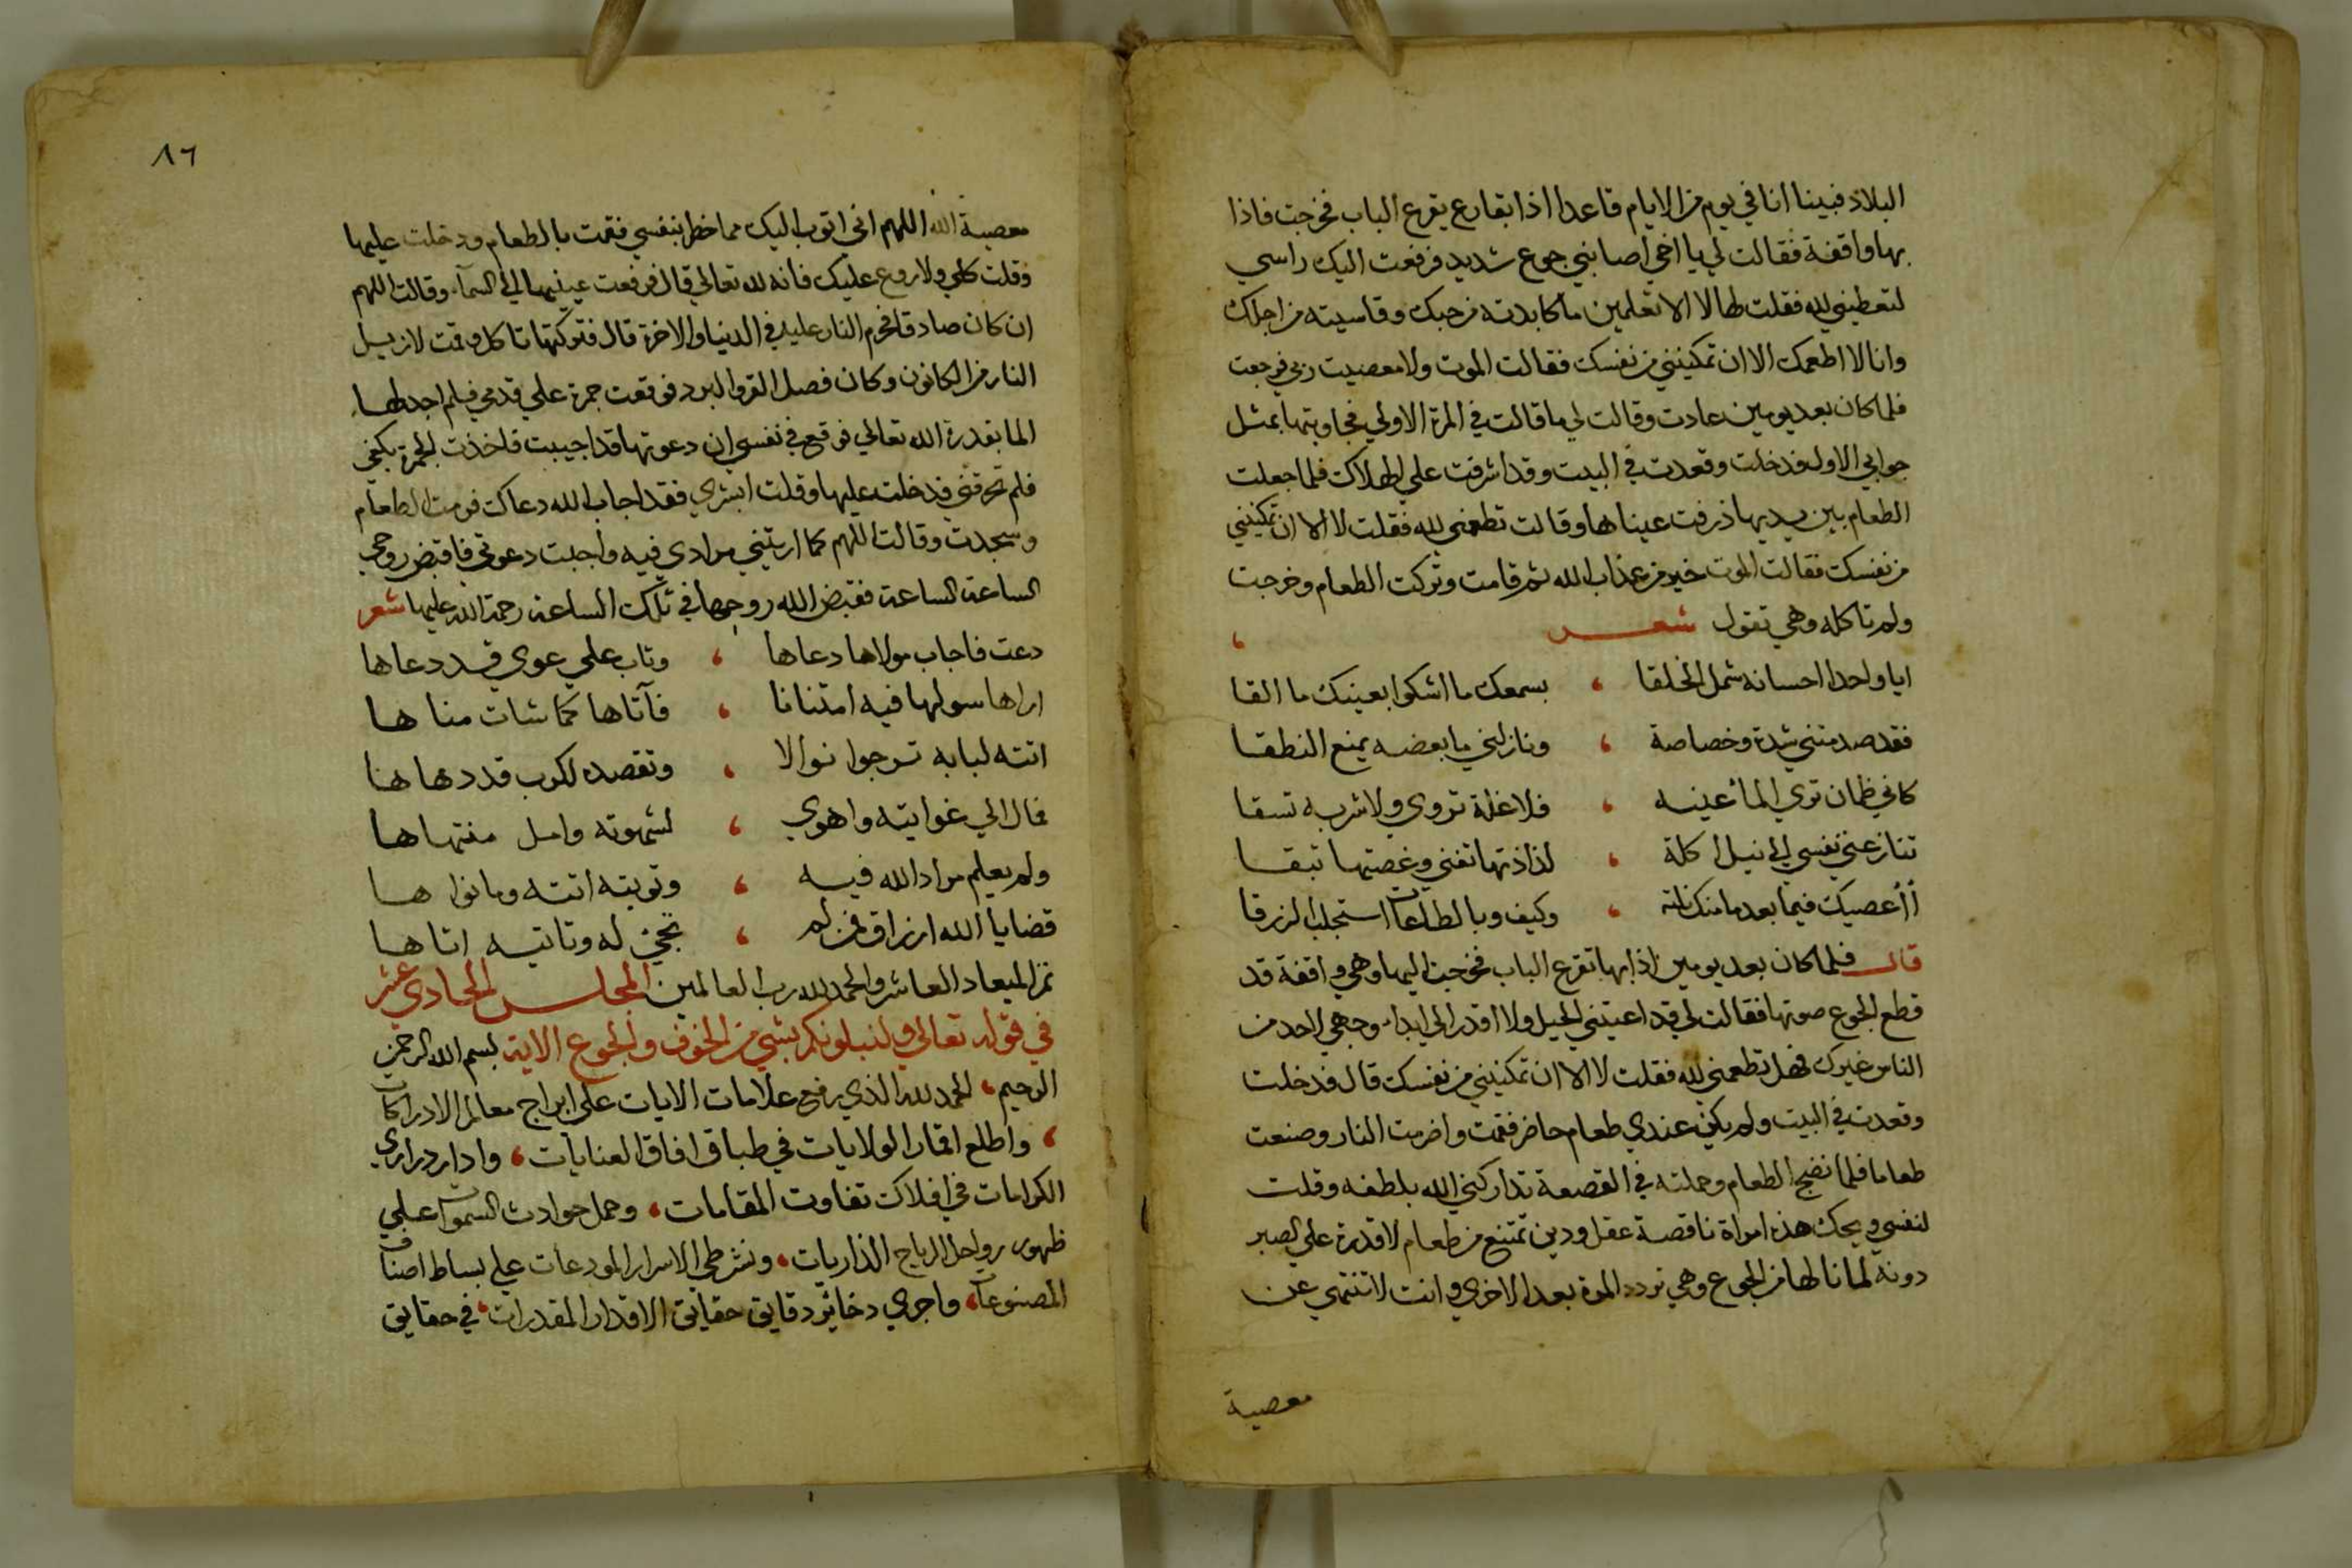 البلاد فبينا انا في يوم من الايام قاعدا اذا بقارع يقرع الباب فخرجت فاذا
بها واقفة فقالت لي يا اخي اصابني جوع شديد فرفعت اليك راسي
لتعطيني لله فقلت لها لا الا تعلمين ما كابدته من حبك وقاسيته من اجلك
وانا لا اطعمك الا ان تمكينني من نفسك فقالت الموت ولا معصيت ربي فرجعت
فلما كان بعد يومين عادت وقالت لي ما قالت في المرة الاولي فجاوبتها بمثل
جوابي الاول فدخلت وقعدت في البيت وقد اشرفت علي الهلاك فلما جعلت
الطعام بين يديها ذرفت عيناها وقالت تطعمني لله فقلت لا الا ان تمكينني
من نفسك فقالت الموت خير من عذاب الله ثم قامت وتركت الطعام وخرجت
ولم تاكله وهي تقول شعر
ايا واحدا احسانه شمل الخلقا ، بسمعك ما اشكوا بعينك ما القا
فقد صدمتني شدة وخصاصة ، ونازلني ما بعضه يمنع النطقا
كاني ظمان تري الماء عينه ، فلا غلة تروي ولا شربه تسقا
تنازعني نفسي الي نيل اكلة ، لذاذتها تفني وغصتها تبقا
أأعصيك فيما بعد ما منك نلته ، وكيف وبالطاعات استجلب الرزقا
قال فلما كان بعد يومين اذا بها تقرع الباب فخرجت اليها وهي واقفة قد
قطع الجوع صوتها فقالت لي قد اعيتني الحيل ولا اقدر الي ابداء وجهي لاحد من
الناس غيرك فهل تطعمني لله فقلت لا الا ان تمكينني من نفسك قال فدخلت
وقعدت في البيت ولم يكن عندي طعام حاضر فقمت واضرمت النار وصنعت
طعاما فلما نضج الطعام وحملته في القصعة تداركني الله بلطفه وقلت
لنفسي ويحك هذه امراة ناقصة عقل ودين تمتنع من طعام لا قدرة علي الصبر
دونه لما نالها من الجوع وهي تردد المرة بعد الاخري وانت لا تنتهي عن
معصية
٨٦
معصية الله اللهم اني اتوب اليك مما خطر بنفسي فقمت بالطعام ودخلت عليها
وقلت كلي ولا روع عليك فانه لله تعالي قال فرفعت عينيها الي السماء وقالت اللهم
ان كان صادقا فحرم النار عليه في الدنيا والاخرة قال فتركتها تاكل وقمت لازيل
النار من الكانون وكان فصل القر والبرد فوقعت جمرة علي قدمي فلم اجد لها
الما بقدرة الله تعالي فوقع في نفسي ان دعوتها قد اجيبت فاخذت الجمرة بكفي
فلم تحرقني فدخلت عليها وقلت ابشري فقد اجاب الله دعاك فرمت الطعام
وسجدت وقالت اللهم كما اريتني مرادي فيه واجبت دعوتي فاقبض روحي
الساعة الساعة فقبض الله روحها في تلك الساعة رحمة الله عليها شعر
دعت فاجاب مولاها دعاها ، وتاب علي عوي قد دعاها
اراها سولها فيه امتنانا ، فآتاها كما شات مناها
اتته لبابه ترجوا نوالا ، وتقصده لكرب قد دهاها
فمال الي غوايته واهوي ، لشهوته وامل منتهاها
ولم يعلم مراد الله فيه ، وتوبته اتته وما نواها
قضايا الله ارزاق فمن لم ، يجئ له وتاتيه اتاها
تم الميعاد العاشر والحمد لله رب العالمين المجلس الحادي عشر
في قوله تعالي ولنبلونكم بشي من الخوف والجوع الاية بسم الله الرحمن
الرحيم ، الحمد لله الذي رفع علامات الايات علي ابراج معالم الادراكات
، واطلع اقمار الولايات في طباق افاق العنايات ، وادار دراري
الكرامات في افلاك تفاوت المقامات ، وحمل حوادث السموات علي
ظهور رواحل الرياح الذاريات ، ونشر طي الاسرار المودعات علي بساط اصناف
المصنوعات ، واجري دخائر دقايق حقايق الاقدار المقدرات ، في حقايق